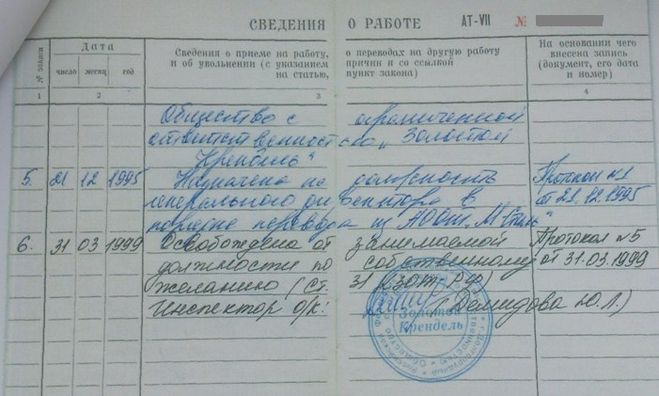 СВЕДЕНИЯ О РАБОТЕ АТ-VII №
№ записи
Дата
Сведения о приеме на работу, о переводах на другую работу
и об увольнении (с указанием причин и со ссылкой
на статью, пункт закона)
На основании чего
внесена запись
(документ, его дата
и номер)
число месяц год
1 2 3 4
Общество с ограниченной
ответственностью „Золотой
Крендель"
5. 21 12 1995 Назначена на должность Протокол №1
генерального директора в от 21.12.1995
порядке перевода из АООТ
6. 31 03 1999 Освобождена от занимаемой Протокол №5
должности по собственному от 31.03.1999
желанию (ст. 31 КЗОТ РФ)
Инспектор о/к: (Демидова Ю.Л.)
Золотой
Крендель